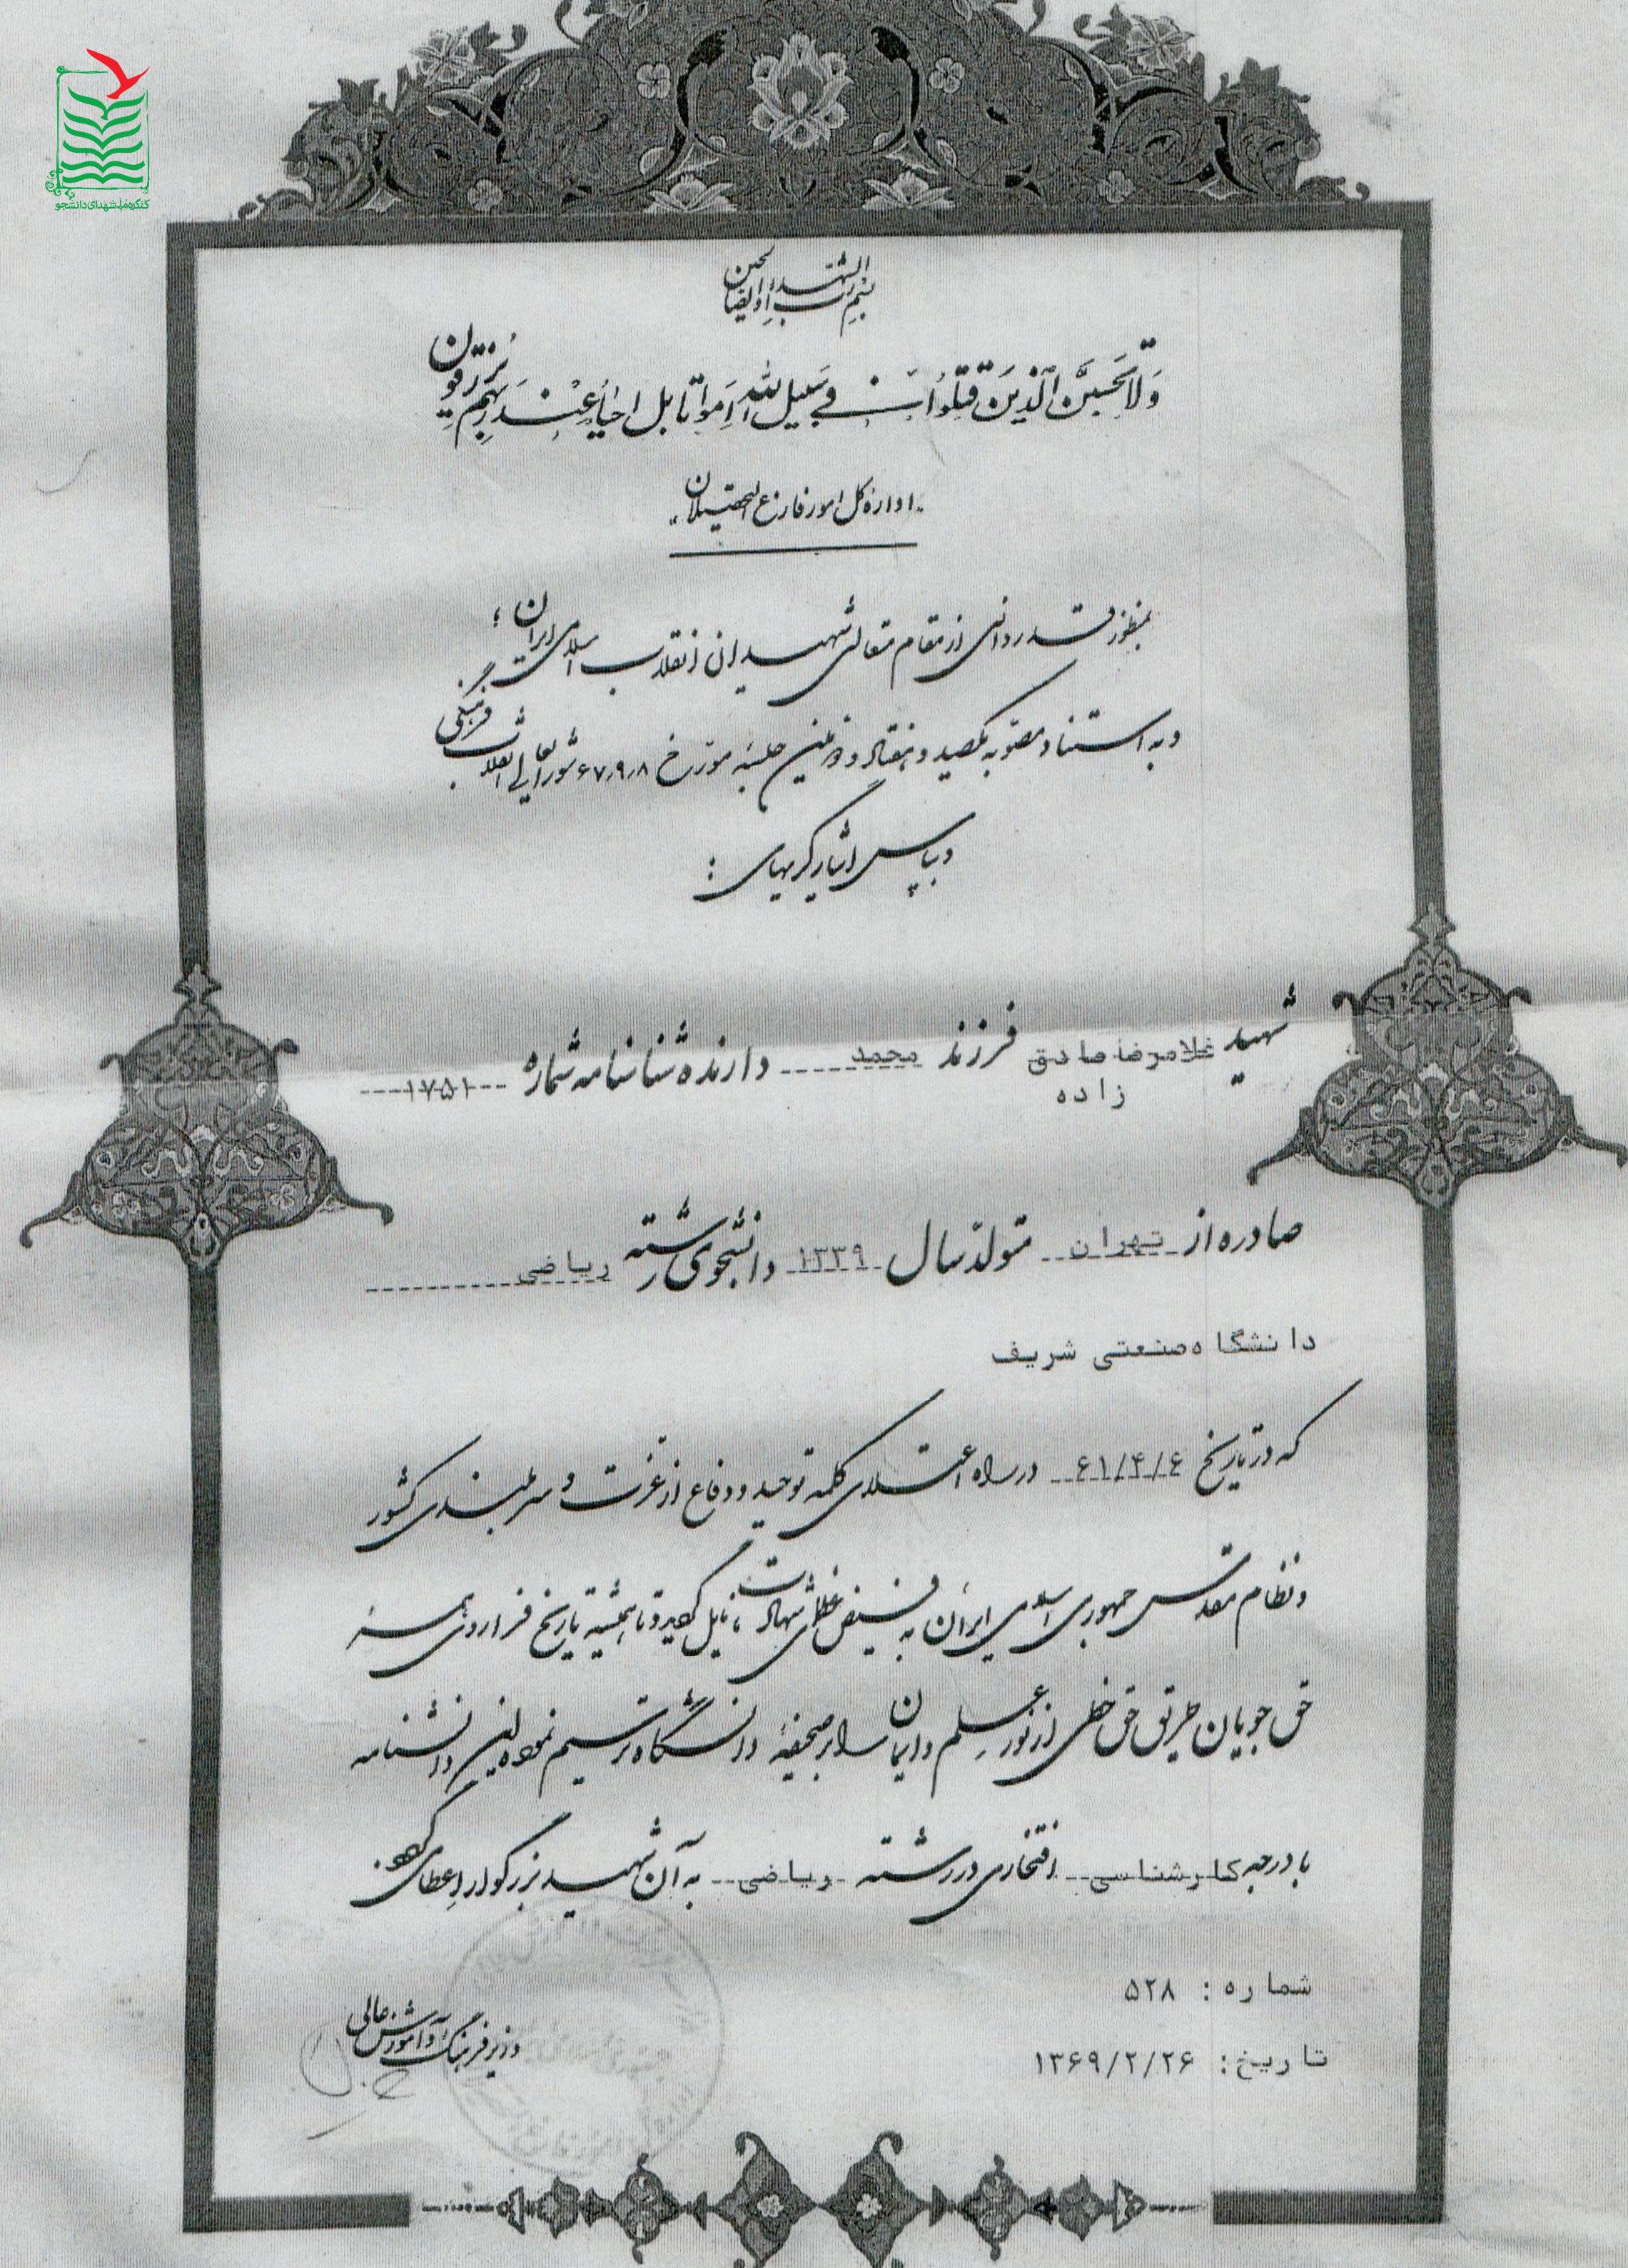 کنگره ملی شهدای دانشجو
بسم رب الشهداء والصالحین
وَلا تَحسَبَنَّ الَّذینَ قُتِلُوا فی سَبیلِ اللهِ اَمواتا بل احیاءٌ عِندَ رَبِّهِم یُرزَقون
"اداره کل امور فارغ التحصیلان"
بمنظور قدردانی از مقام متعالی شهیدان انقلاب اسلامی ایران؛
و به استناد مصوبه یکصد و هفتاد و دومین جلسه مورخ ۶۷٫۹٫۸ شورایعالی انقلاب فرهنگی
و بپاس ایثارگریهای :
شهید غلامرضا صادق زاده فرزند محمد دارنده شناسنامه شماره ۱۷۵۱
صادره از تهران متولد سال ۱۳۳۹ دانشجوی رشته ریاضی
دانشگاه صنعتی شریف
که در تاریخ ۶۱/۴/۶ در راه اعتلای کلمه توحید و دفاع از عزت و سربلندی کشور
و نظام مقدس جمهوری اسلامی ایران به فیض عظمای شهادت نایل گردید و تا همیشه تاریخ فرا روی همه
حق جویان طریق حق خطی از نور علم و ایمان را بر صحیفهٔ دانشگاه ترسیم نمود این دانشنامه
با درجه کارشناسی افتخاری در رشته ریاضی به آن شهید بزرگوار اعطا می گردد.
شماره : ۵۲۸
تاریخ: ۱۳۶۹/۲/۲۶
وزیر فرهنگ و آموزش عالی